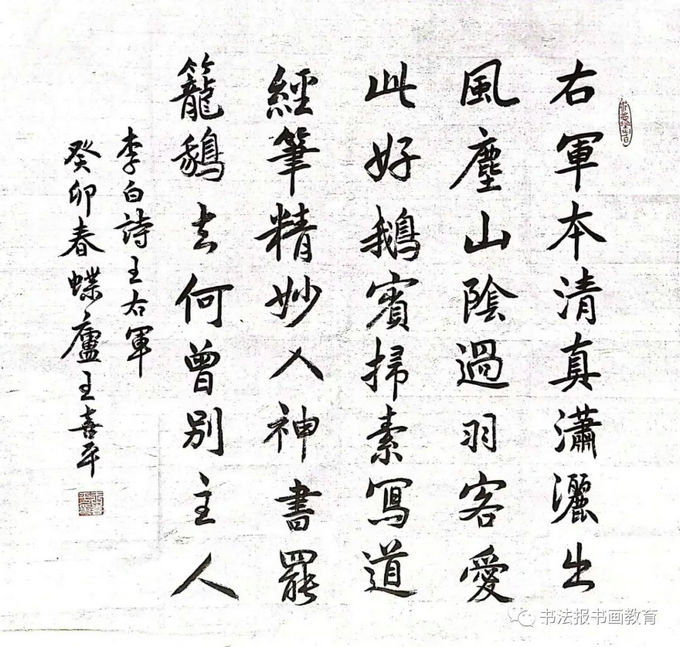 右軍本清真瀟灑出
風塵山陰過羽客愛
此好鵝賓掃素寫道
經筆精妙入神書罷
籠鵝去何曾別主人
李白詩王右軍
癸卯春蝶廬王喜平
书法报书画教育